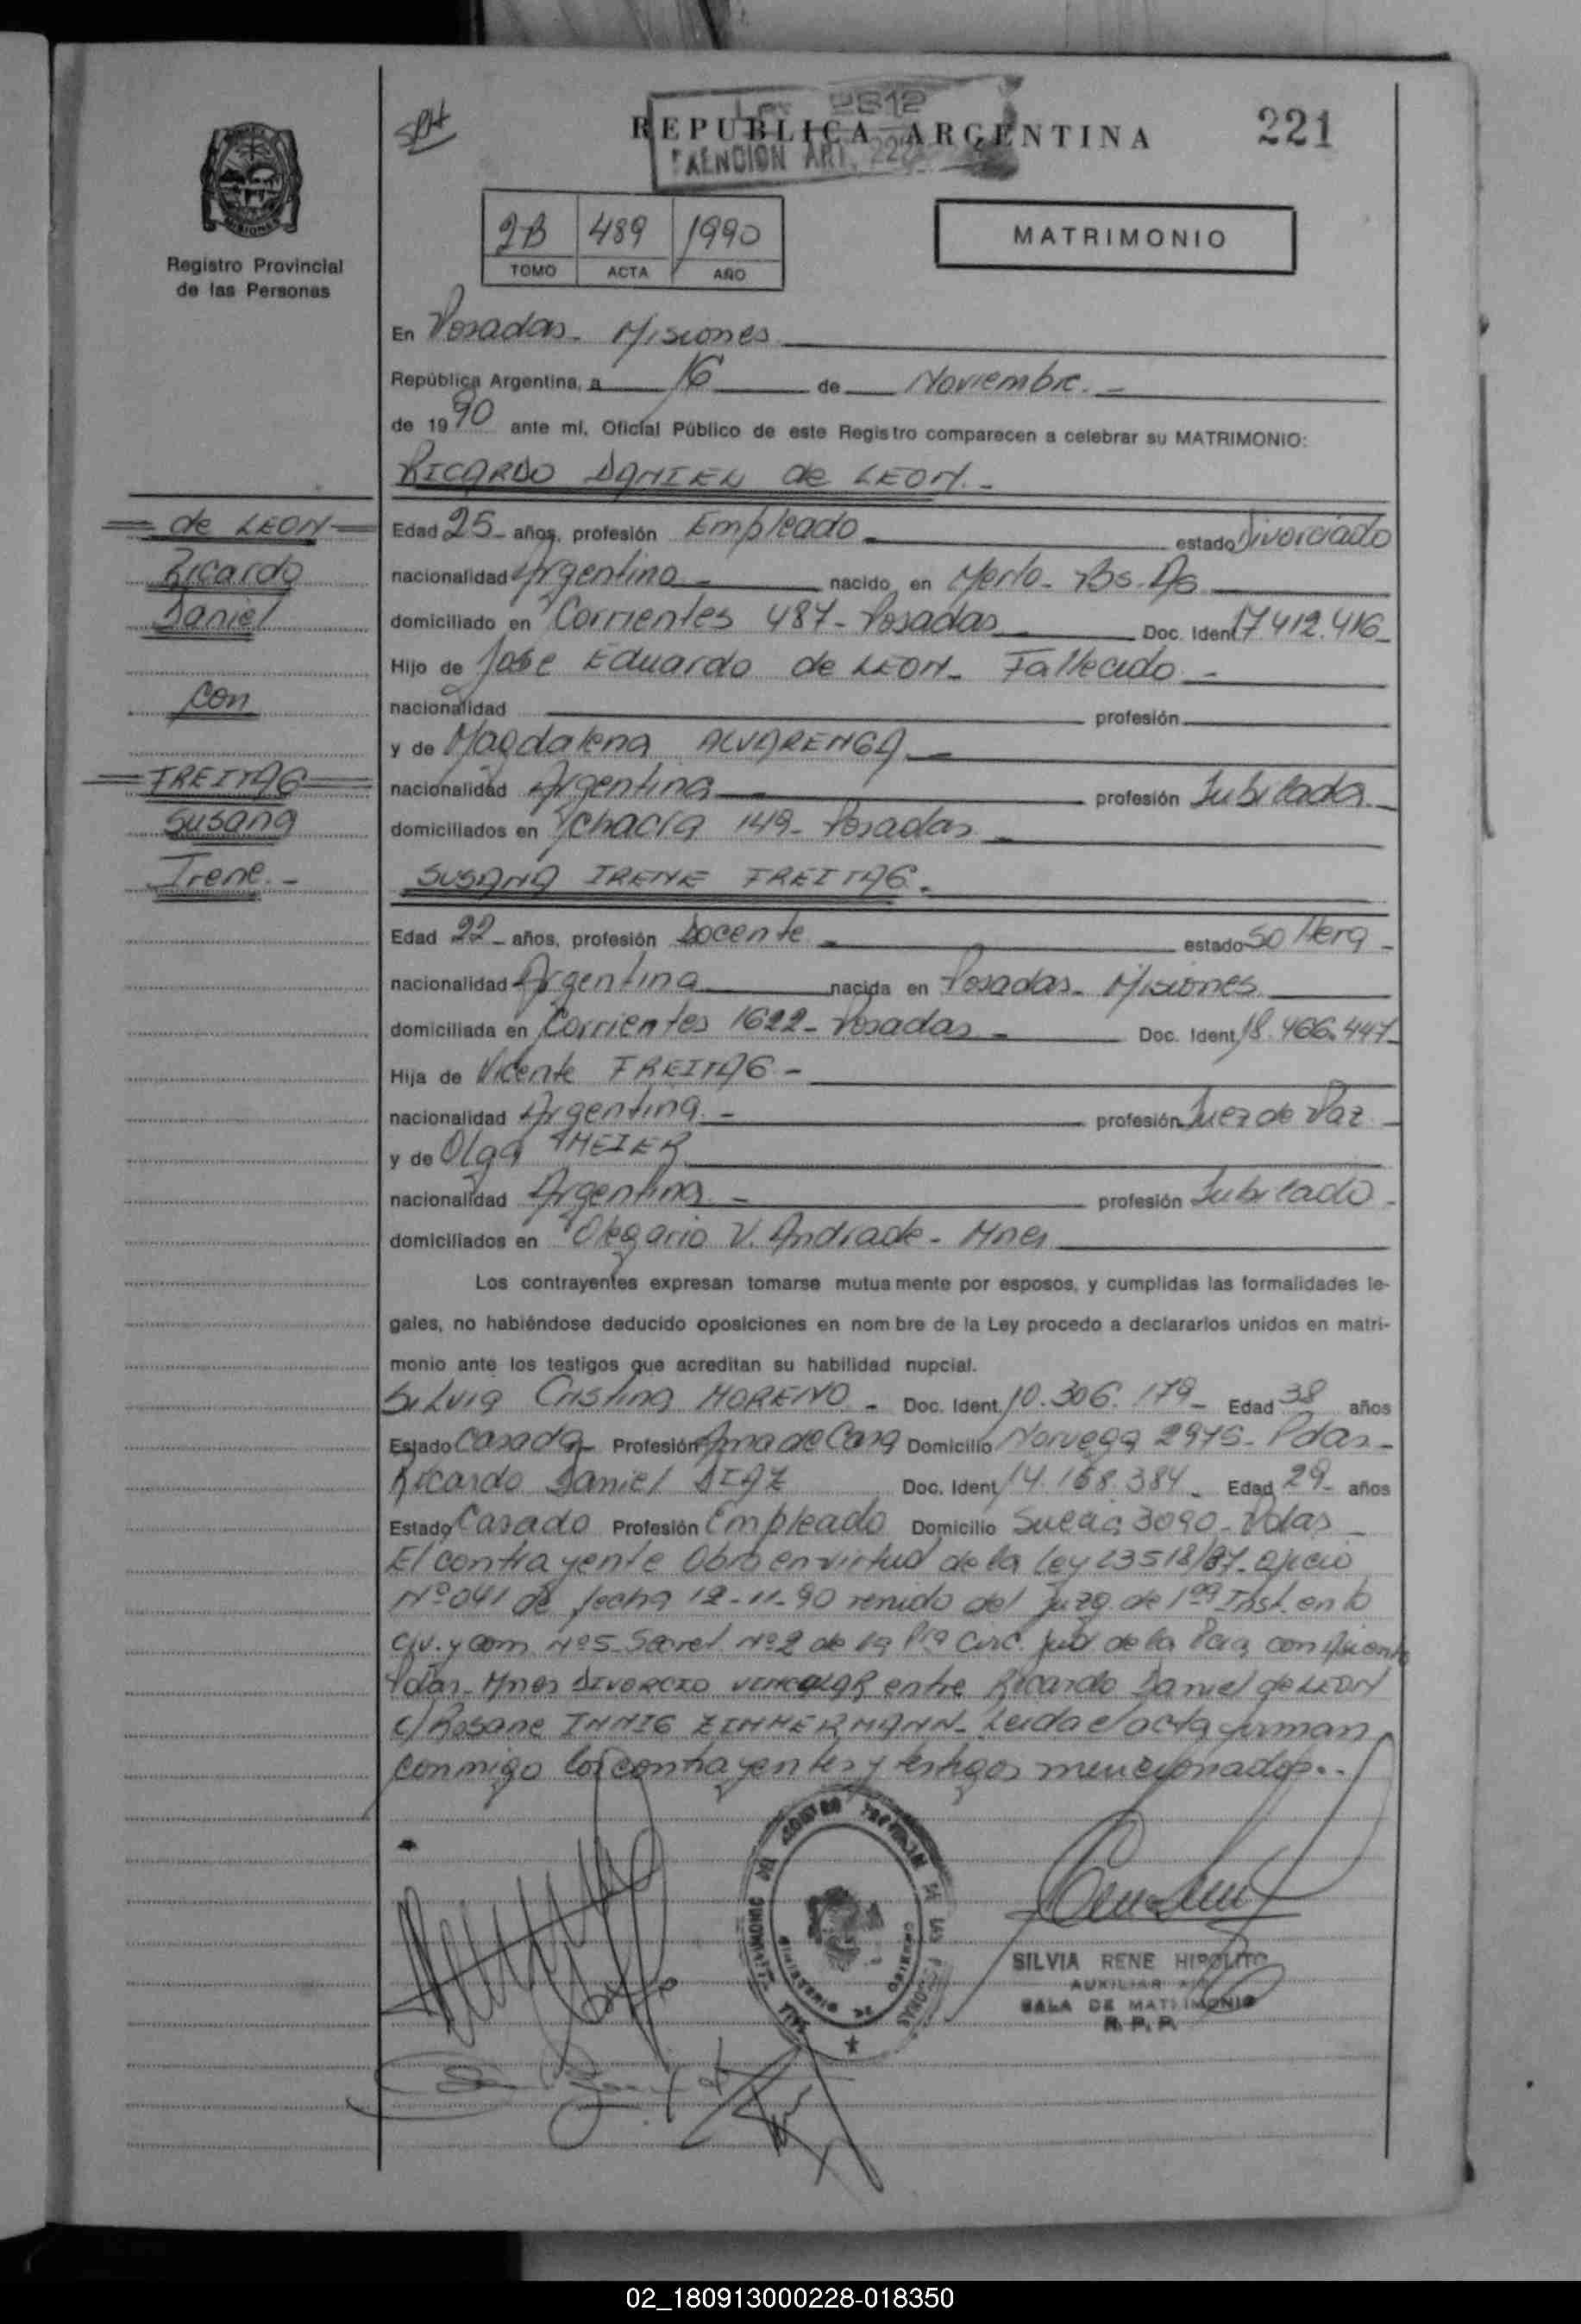 REPUBLICA ARGENTINA
221
Registro Provincial
de las Personas
2B 489 1990
TOMO ACTA AÑO
MATRIMONIO
En Posadas - Misiones
República Argentina, a 16 de Noviembre. -
de 1990 ante mí, Oficial Público de este Registro comparecen a celebrar su MATRIMONIO:
RICARDO DANIEL de LEON. -
de LEON
Ricardo
Daniel
con
FREITAG
Susana
Irene. -
Edad 25 - años, profesión Empleado - estado Divorciado
nacionalidad Argentina - nacido en Merlo - Bs. As
domiciliado en Corrientes 487 - Posadas Doc. Ident 17.412.416
Hijo de José Eduardo de LEON - Fallecido -
nacionalidad profesión
y de Magdalena ALVARENGA -
nacionalidad Argentina - profesión Jubilada -
domiciliados en chacra 149 - Posadas -
SUSANA IRENE FREITAG. -
Edad 22 - años, profesión Docente - estado Soltera -
nacionalidad Argentina nacida en Posadas - Misiones
domiciliada en Corrientes 1622 - Posadas - Doc. Ident 18.466.447
Hija de Vicente FREITAG -
nacionalidad Argentina - profesión Juez de Paz
y de Olga
nacionalidad Argentina - profesión Jubilado -
domiciliados en Olegario V. Andrade - Mnes
Los contrayentes expresan tomarse mutuamente por esposos, y cumplidas las formalidades le-
gales, no habiéndose deducido oposiciones en nombre de la Ley procedo a declararlos unidos en matri-
monio ante los testigos que acreditan su habilidad nupcial.
Silvia Cristina MORENO - Doc. Ident. 10.306.179 - Edad 38 años
Estado Casada - Profesión Ama de Casa Domicilio Noruega 2975 - Pdas -
Ricardo Daniel DIAZ Doc. Ident 14.168.384 - Edad 29 - años
Estado Casado Profesión Empleado Domicilio Suecia 3090 - Pdas -
El contrayente Obra en virtud de la Ley 23518/87 - oficio
Nº 041 de fecha 12-11-90 venido del Juzg. de 1ra Inst. en lo
Civ. y Com. Nº 5 - Secret. Nº 2 de la Pra Circ. Jud de la Pcia con Asiento
Pdas - Mnes DIVORCIO VINCULAR entre Ricardo Daniel de LEON
c/ Rosane INNIG ZIMMERMANN - Leida el acta firman
conmigo los contrayentes y testigos mencionados. -
SILVIA RENE HIPOLITO
AUXILIAR
SALA DE MATRIMONIO
R. P. P.
02_180913000228-018350